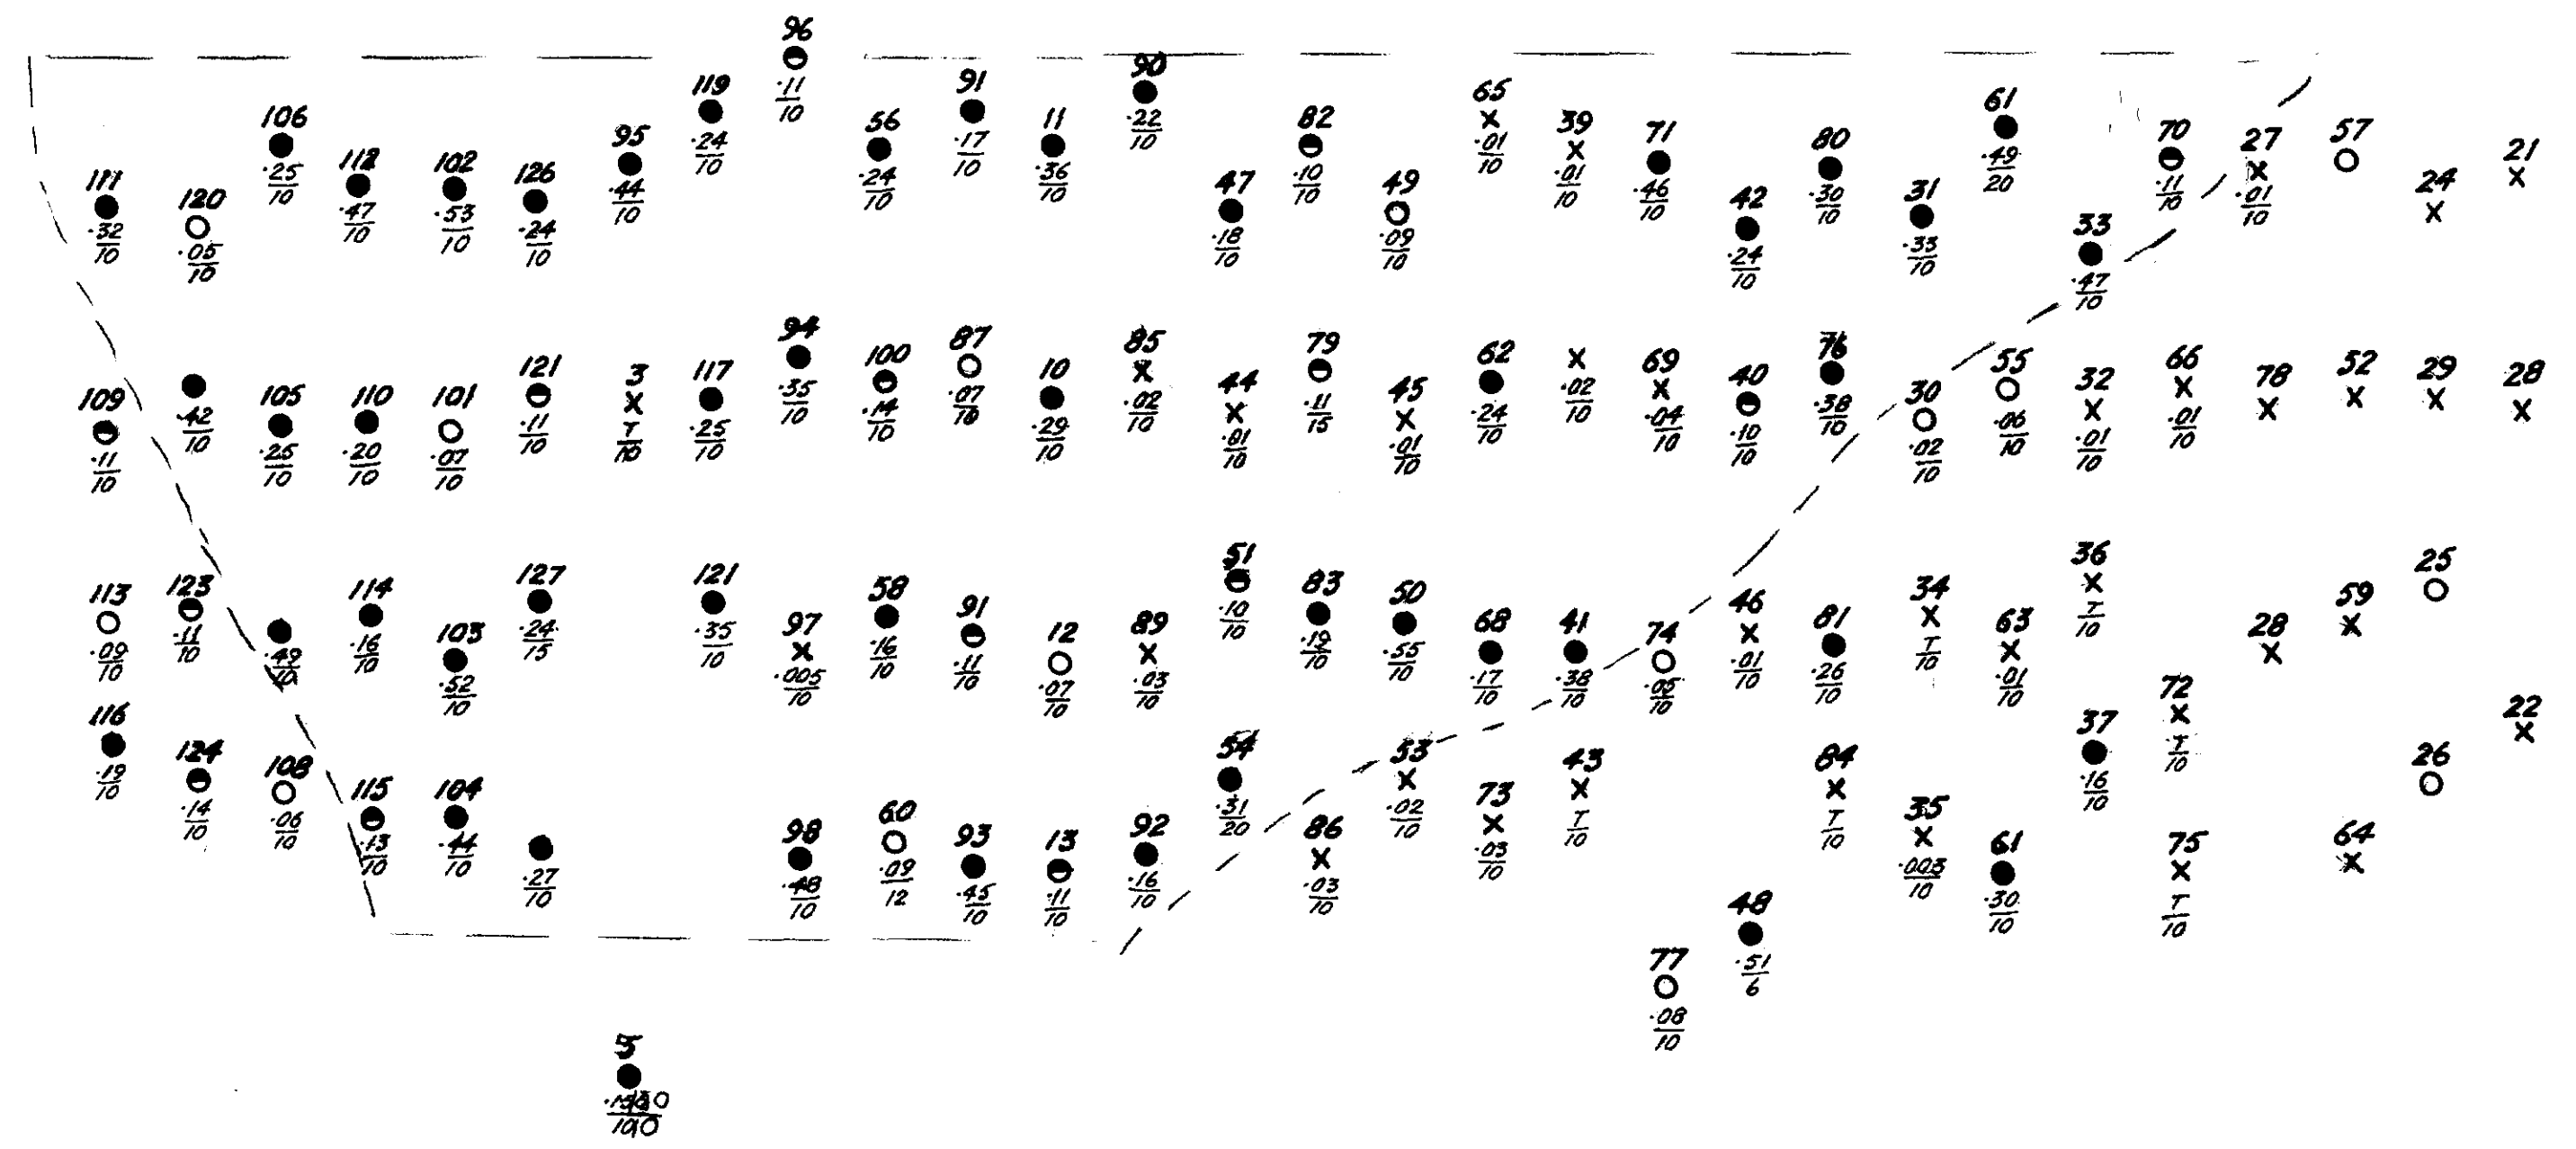 96
.11
10
119
.24
10
91
.17
10
90
.22
10
56
.24
10
11
.36
10
65
.01
10
61
.49
20
106
.25
10
82
.10
10
39
.01
10
71
.46
10
80
.30
10
70
.11
10
27
.01
10
57
21
112
.47
10
102
.53
10
126
.24
10
95
.44
10
111
.32
10
120
.05
10
47
.18
10
49
.09
10
42
.24
10
31
.33
10
33
.47
10
24
109
.11
10
.42
10
105
.25
10
110
.20
10
101
.07
10
121
.11
10
3
T
10
117
.25
10
94
.35
10
100
.14
10
87
.07
10
10
.29
10
85
.02
10
44
.01
10
79
.11
15
45
.01
10
62
.24
10
.02
10
69
.04
10
40
.10
10
76
.38
10
30
.02
10
55
.06
10
32
.01
10
66
.01
10
78
52
29
28
113
.09
10
123
.11
10
.49
10
114
.16
10
103
.52
10
127
.24
15
121
.35
10
97
.005
10
58
.16
10
91
.11
10
12
.07
10
89
.03
10
51
.10
10
83
.19
10
50
.55
10
68
.17
10
41
.38
10
74
.05
10
46
.01
10
81
.26
10
34
T
10
63
.01
10
36
T
10
28
59
25
116
.19
10
124
.14
10
108
.06
10
115
.13
10
104
.44
10
.27
10
98
.48
10
60
.09
12
93
.45
10
13
.11
10
92
.16
10
54
.31
20
86
.03
10
53
.02
10
73
.03
10
43
T
10
84
T
10
35
.003
10
61
.30
10
37
.16
10
72
T
10
75
T
10
64
26
22
48
.51
6
77
.08
10
5